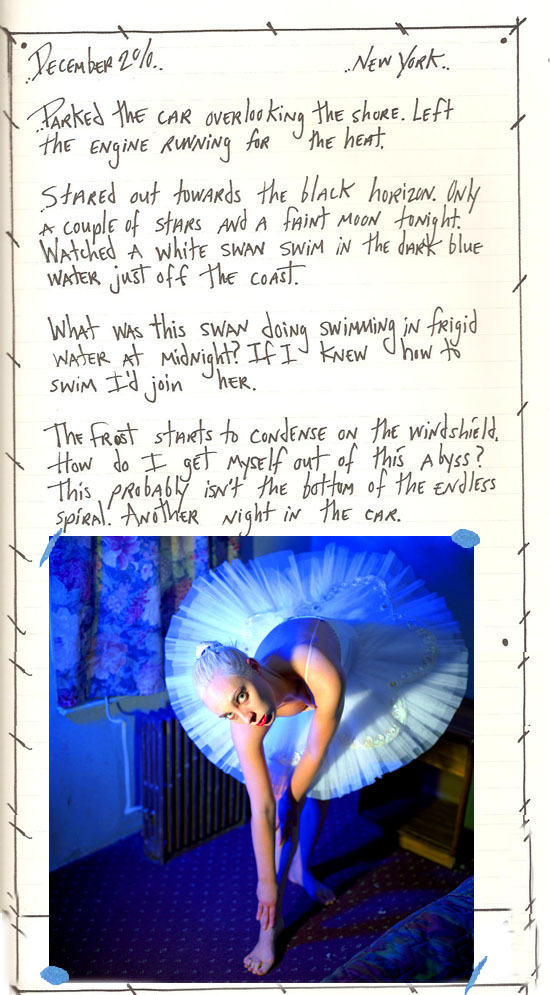 December 2010.. ..New York..
Parked the car overlooking the shore. Left
the engine running for the heat.
Stared out towards the black horizon. Only
a couple of stars and a faint moon tonight.
Watched a white swan swim in the dark blue
water just off the coast.
What was this swan doing swimming in frigid
water at midnight? If I knew how to
swim I'd join her.
The frost starts to condense on the windshield.
How do I get myself out of this abyss?
This probably isn't the bottom of the endless
spiral. Another night in the car.